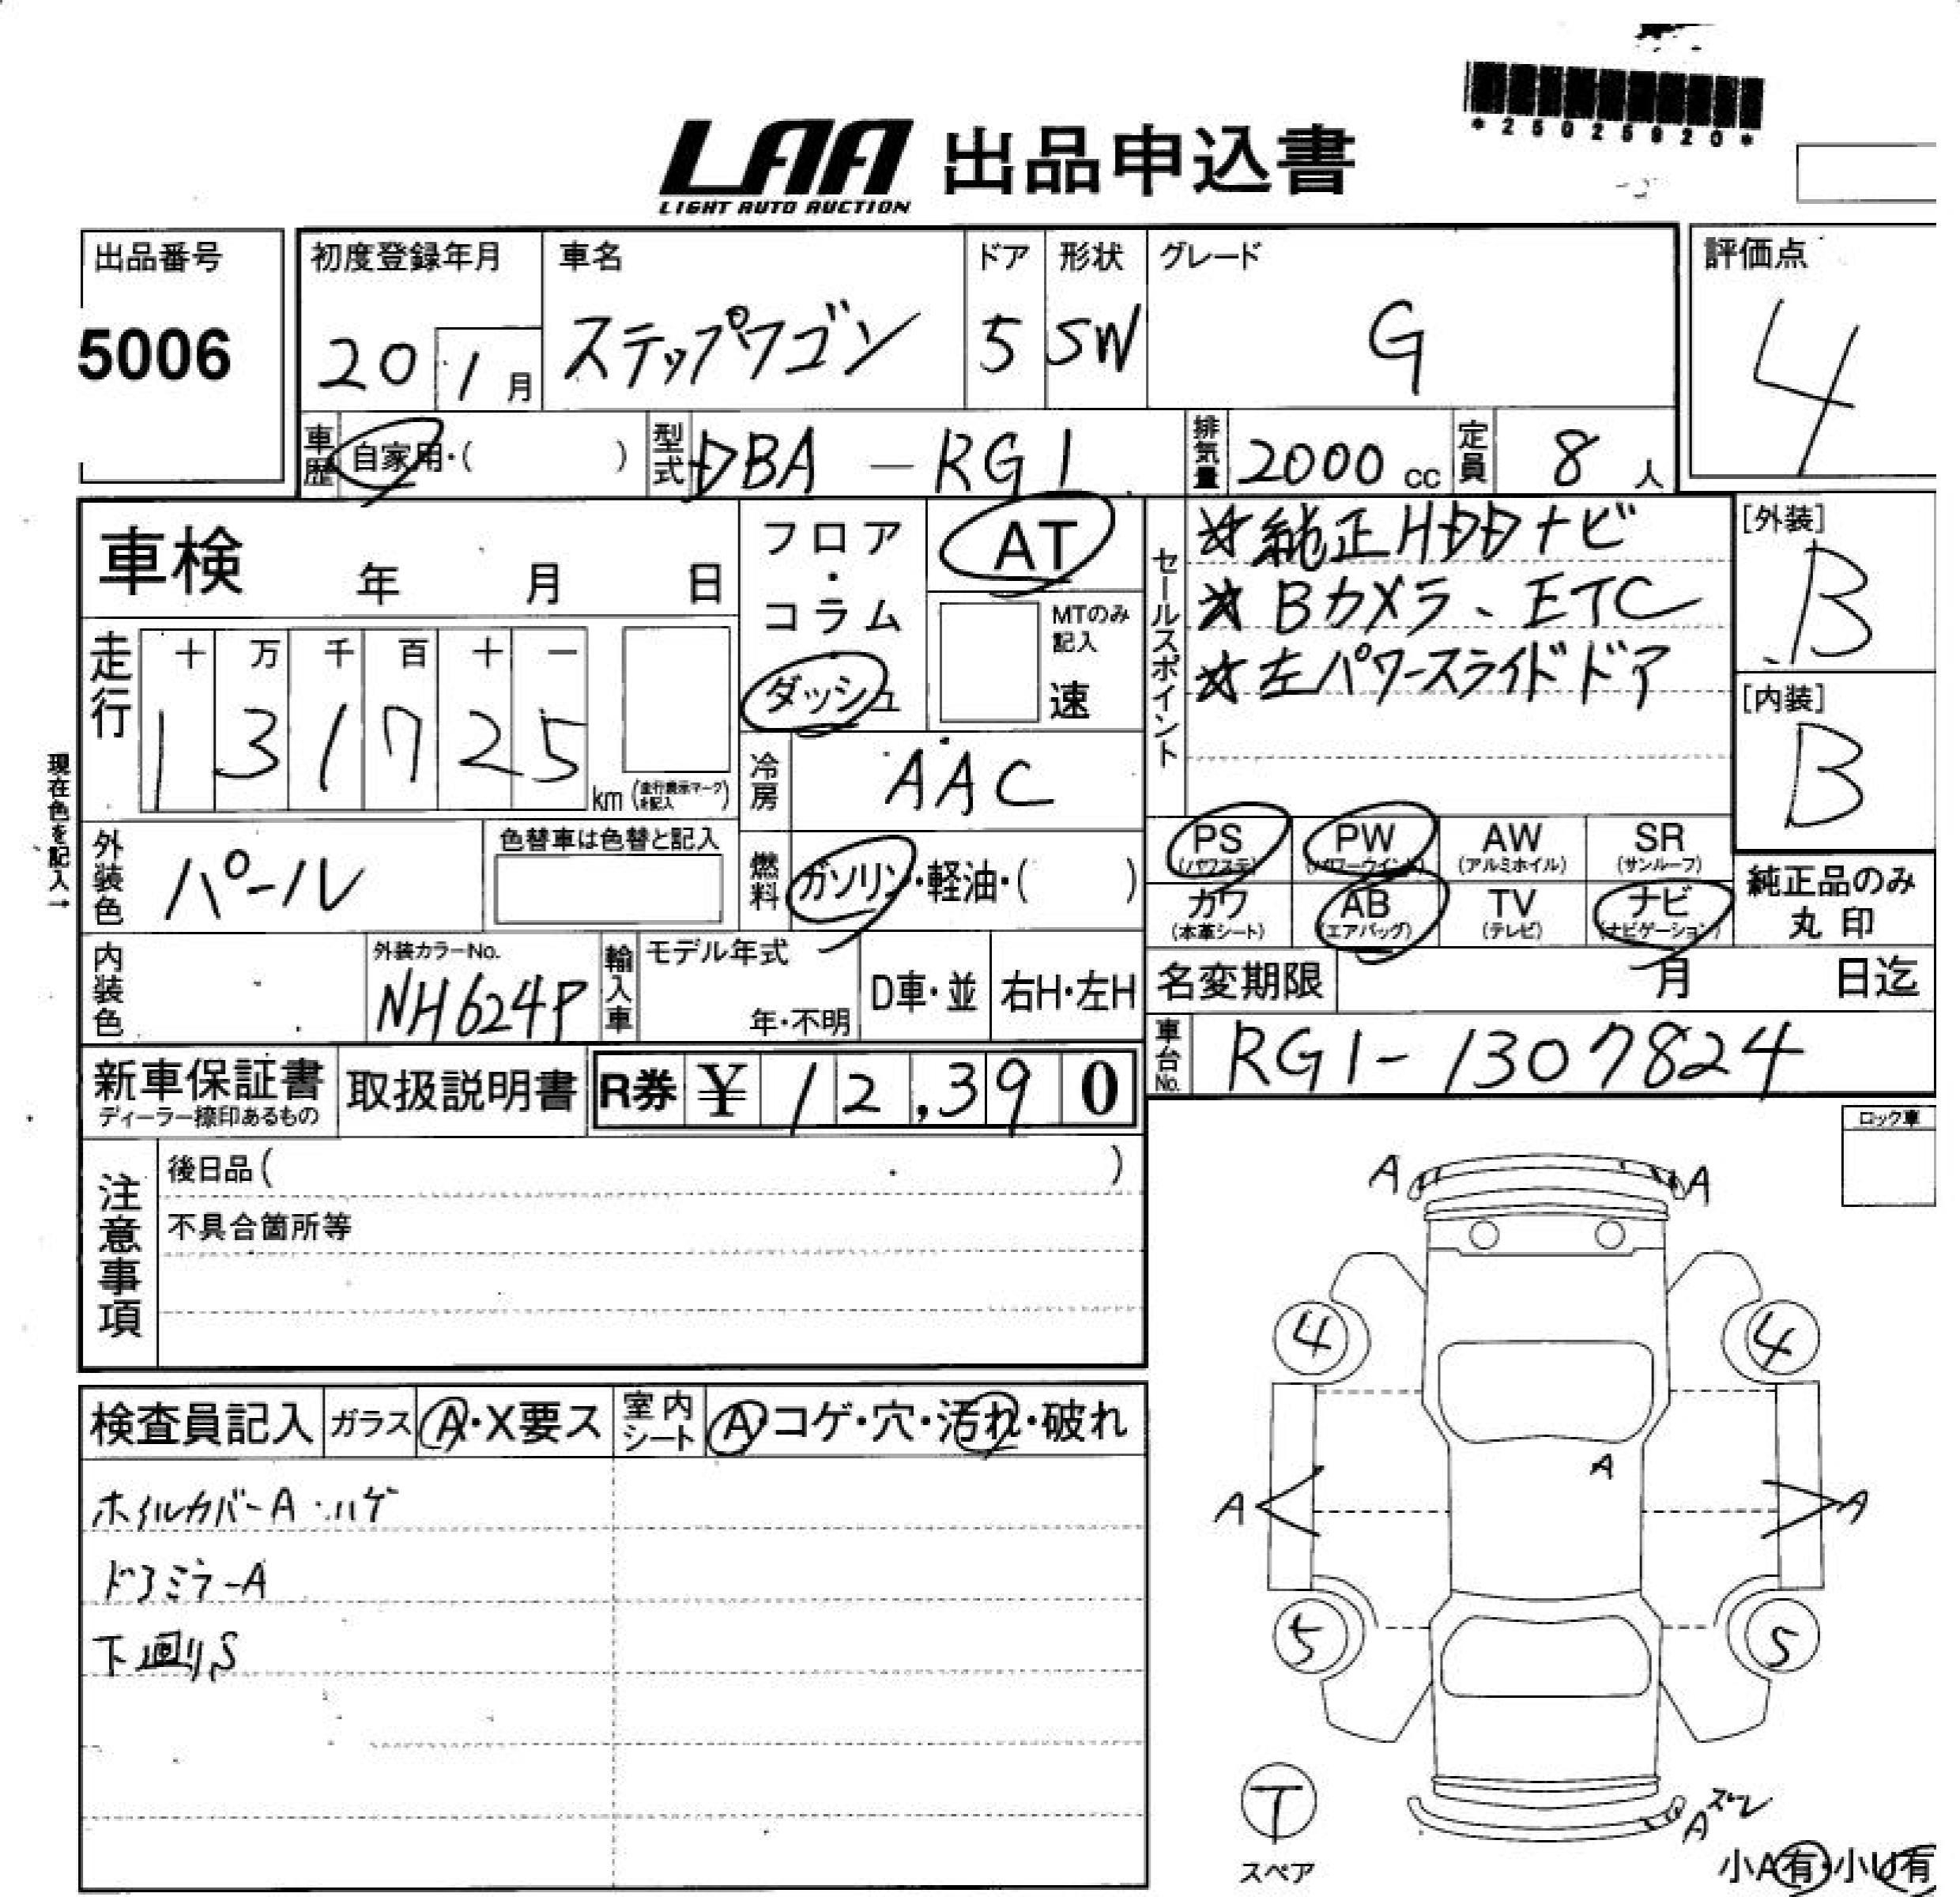 *25025920*
LAA 出品申込書
LIGHT AUTO AUCTION
出品番号
5006
初度登録年月
20 1月
車名
ステップワゴン
ドア
5
形状
SW
グレード
G
評価点
4
車歴 自家用・( )
型式 DBA-RG1
排気量 2000cc
定員 8人
車検 年 月 日
フロア・コラム
ダッシュ
AT
MTのみ記入
速
走行
十 万 千 百 十 一
1 3 1 7 2 5 km (走行表示マークを記入)
冷房 AAC
現在色を記入→
外装色 パール
色替車は色替と記入
燃料 ガソリン・軽油・( )
内装色
外装カラーNo.
NH624P
輸入車
モデル年式
年・不明
D車・並
右H・左H
セールスポイント
☆純正HDDナビ
☆Bカメラ、ETC
☆左パワースライドドア
[外装]
B
[内装]
B
PS (パワステ)
PW (パワーウインド)
AW (アルミホイル)
SR (サンルーフ)
カワ (本革シート)
AB (エアバッグ)
TV (テレビ)
ナビ (ナビゲーション)
純正品のみ
丸印
名変期限 月 日迄
車台No. RG1-1307824
新車保証書
ディーラー捺印あるもの
取扱説明書
R券 ¥12,390
注意事項
後日品( )
不具合箇所等
検査員記入 ガラス A・X要ス 室内シート A・コゲ・穴・汚れ・破れ
ホイルカバーA・ハゲ
ドアミラーA
下廻りS
ロック車
A A
4 4
A
A A
5 5
T
スペア
Aズレ
小A有・小U有